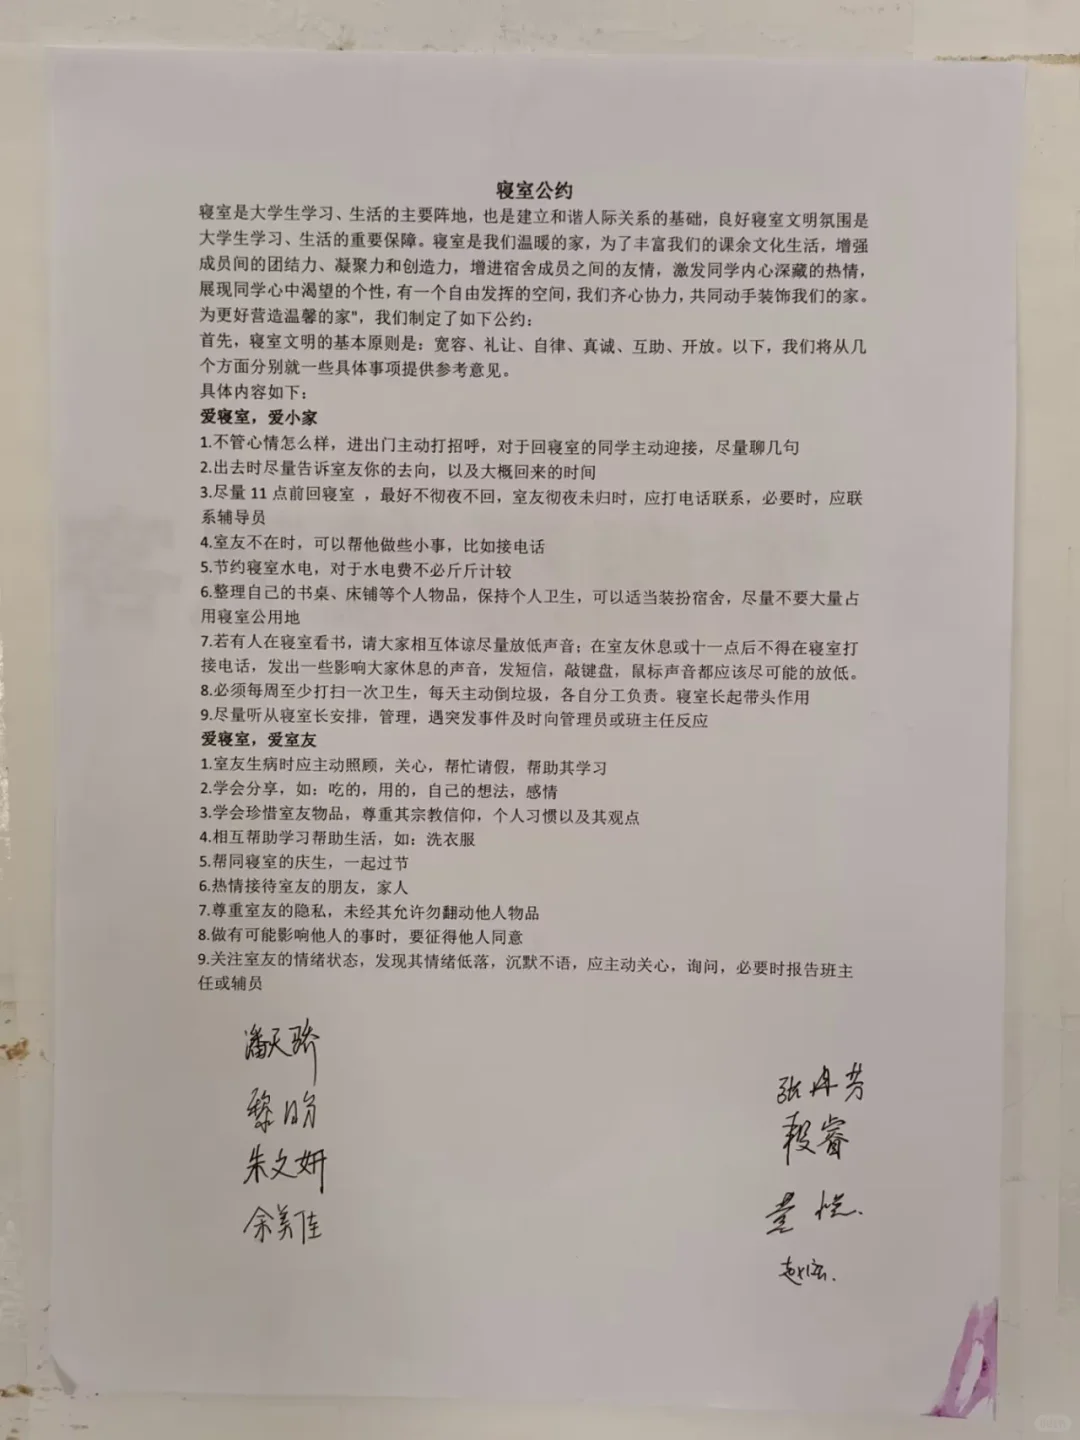 寝室公约
寝室是大学生学习、生活的主要阵地，也是建立和谐人际关系的基础，良好寝室文明氛围是
大学生学习、生活的重要保障。寝室是我们温暖的家，为了丰富我们的课余文化生活，增强
成员间的团结力、凝聚力和创造力，增进宿舍成员之间的友情，激发同学内心深藏的热情，
展现同学心中渴望的个性，有一个自由发挥的空间，我们齐心协力，共同动手装饰我们的家。
为更好营造温馨的家"，我们制定了如下公约：
首先，寝室文明的基本原则是：宽容、礼让、自律、真诚、互助、开放。以下，我们将从几
个方面分别就一些具体事项提供参考意见。
具体内容如下：
爱寝室，爱小家
1.不管心情怎么样，进出门主动打招呼，对于回寝室的同学主动迎接，尽量聊几句
2.出去时尽量告诉室友你的去向，以及大概回来的时间
3.尽量 11 点前回寝室 ，最好不彻夜不回，室友彻夜未归时，应打电话联系，必要时，应联
系辅导员
4.室友不在时，可以帮他做些小事，比如接电话
5.节约寝室水电，对于水电费不必斤斤计较
6.整理自己的书桌、床铺等个人物品，保持个人卫生，可以适当装扮宿舍，尽量不要大量占
用寝室公用地
7.若有人在寝室看书，请大家相互体谅尽量放低声音；在室友休息或十一点后不得在寝室打
接电话，发出一些影响大家休息的声音，发短信，敲键盘，鼠标声音都应该尽可能的放低。
8.必须每周至少打扫一次卫生，每天主动倒垃圾，各自分工负责。寝室长起带头作用
9.尽量听从寝室长安排，管理，遇突发事件及时向管理员或班主任反应
爱寝室，爱室友
1.室友生病时应主动照顾，关心，帮忙请假，帮助其学习
2.学会分享，如：吃的，用的，自己的想法，感情
3.学会珍惜室友物品，尊重其宗教信仰，个人习惯以及其观点
4.相互帮助学习帮助生活，如：洗衣服
5.帮同寝室的庆生，一起过节
6.热情接待室友的朋友，家人
7.尊重室友的隐私，未经其允许勿翻动他人物品
8.做有可能影响他人的事时，要征得他人同意
9.关注室友的情绪状态，发现其情绪低落，沉默不语，应主动关心，询问，必要时报告班主
任或辅员
潘天骄
黎昀
朱文妍
余美佳
张丹芳
睿